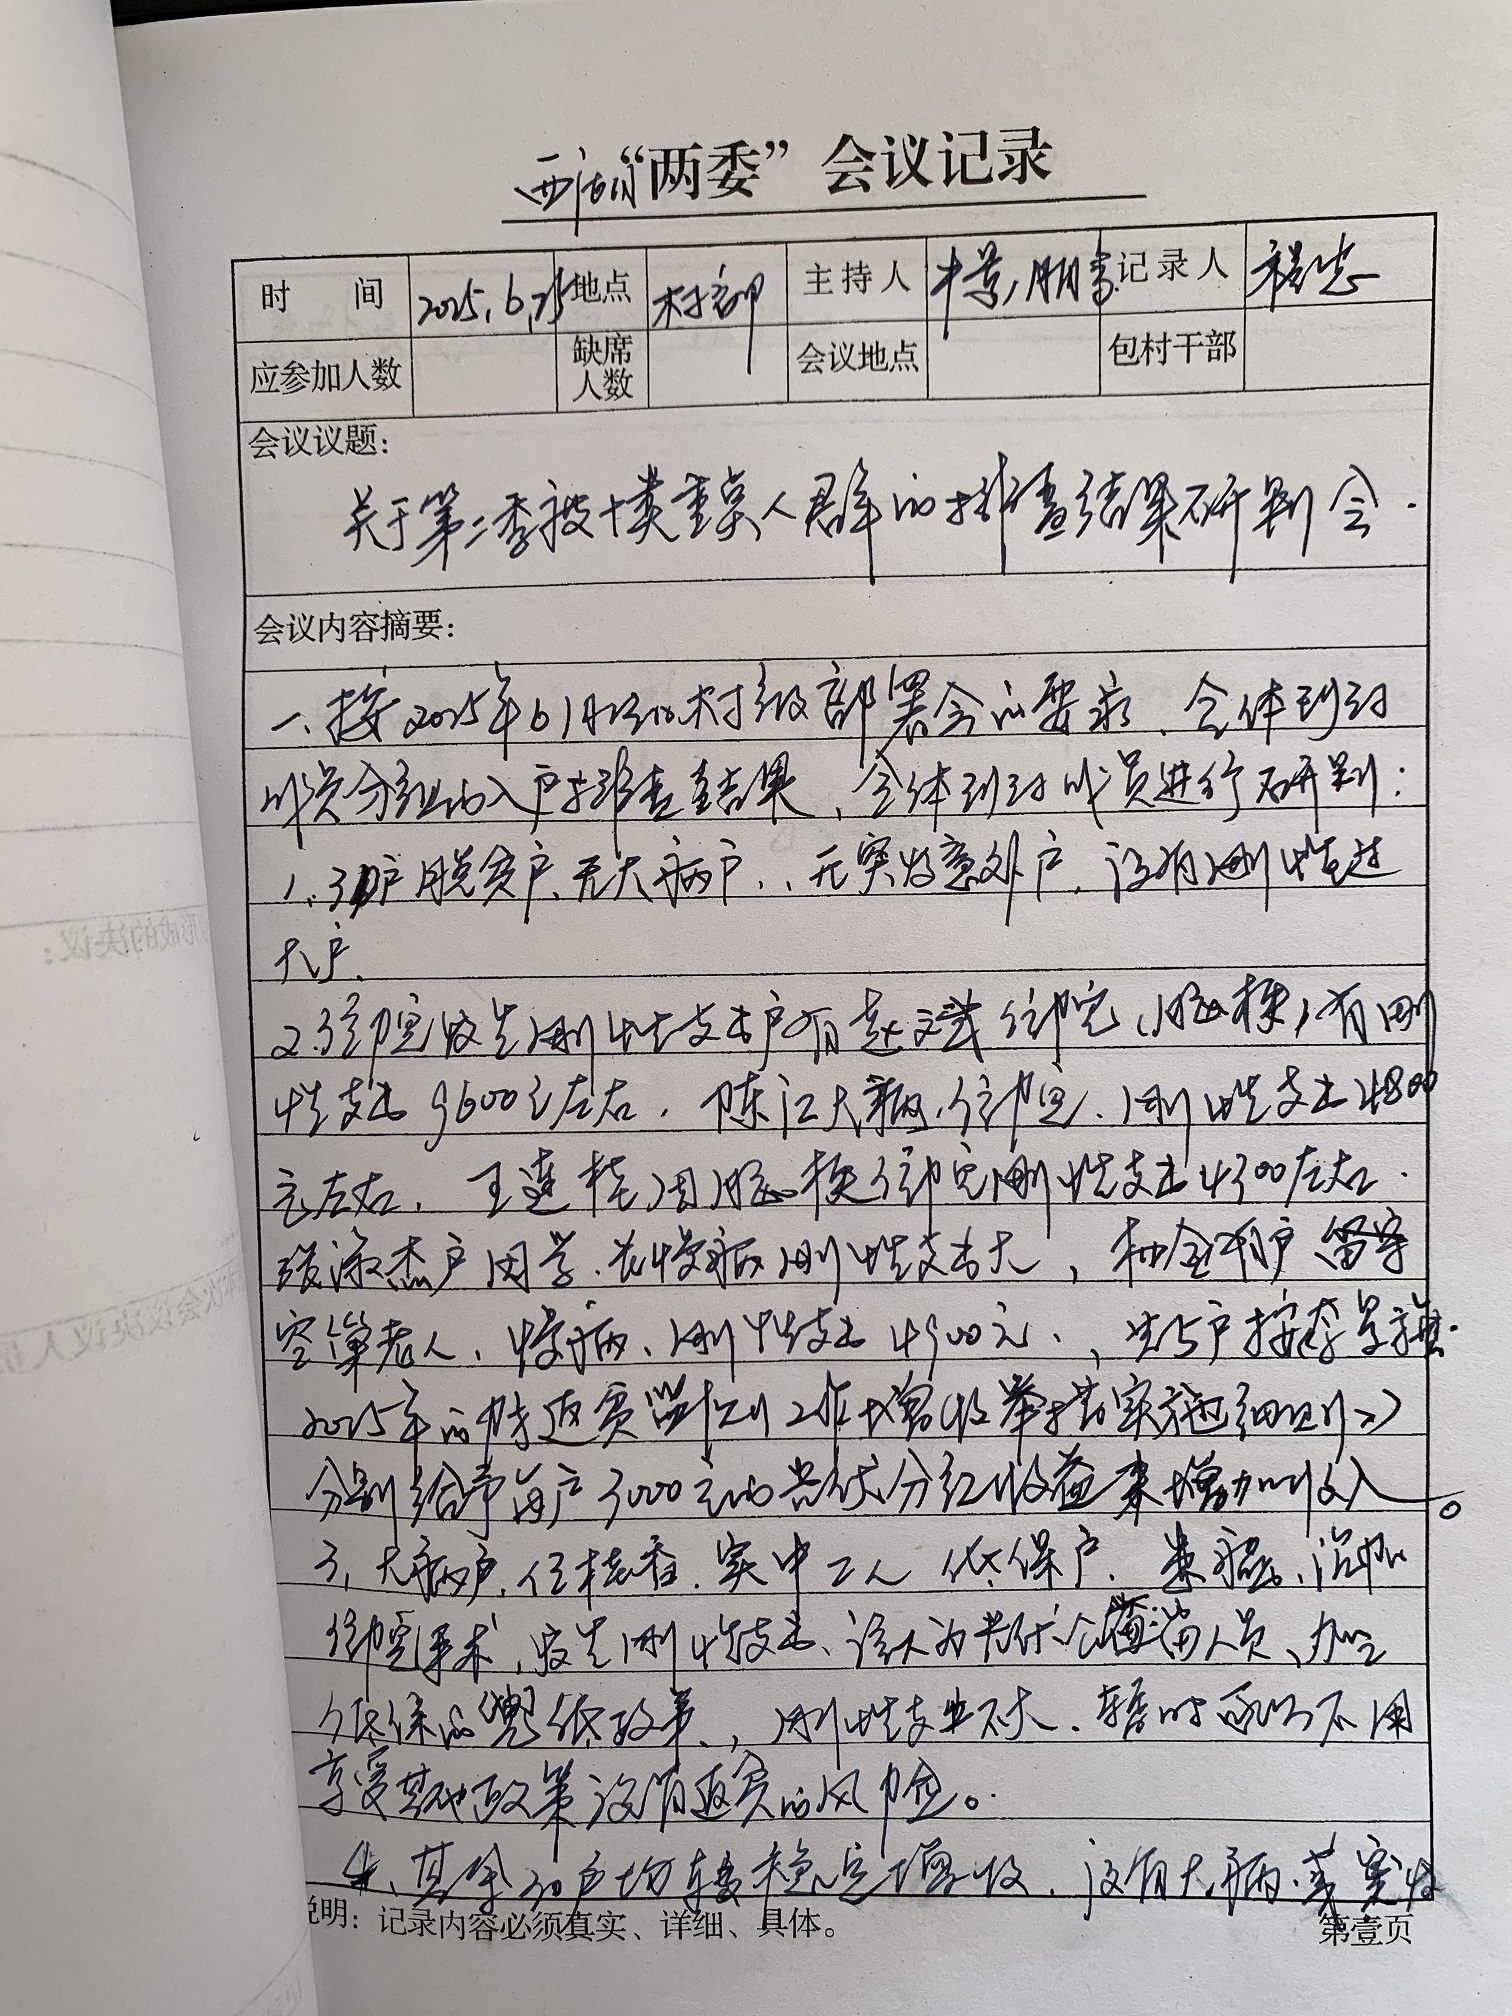 “两委”会议记录
时 间 2025.6.25 地点 村部 主持人 记录人
应参加人数 缺席人数 会议地点 包村干部
会议议题:
关于第二季度十类重点人群的排查结果研判会.
会议内容摘要:
一、按2025年6月 村级部署会的要求、全体
员分组的入户排查结果、全体 员进行研判:
1. 户脱贫户、无大病户、无突发意外户、没有刚性过
大户、
2. 住院发生刚性支出户有赵文武住院(脑梗)有刚
性支出9600元左右、陈江大病住院、刚性支出4800
元左右、王 因脑梗住院刚性支出4300左右.
张淑杰户因学、长慢病刚性支出大, 户留守
空巢老人、慢病、刚性支出4900元、 5户按
2025年的防返贫监测工作增收举措实施细则》
分别给予每户3000元的光伏分红收益来增加收入。
3、大病户、任桂香、实中二人 低保户、
住院手术,发生刚性支出、该人为光伏公益岗人员、加上
低保的 政策、,刚性支出不大、暂时可以不用
享受其他政策没有返贫的风险。
4、其余30户均 稳定增收、没有大病、突发
说明:记录内容必须真实、详细、具体。 第壹页
形成的决议:
次会议决议人员